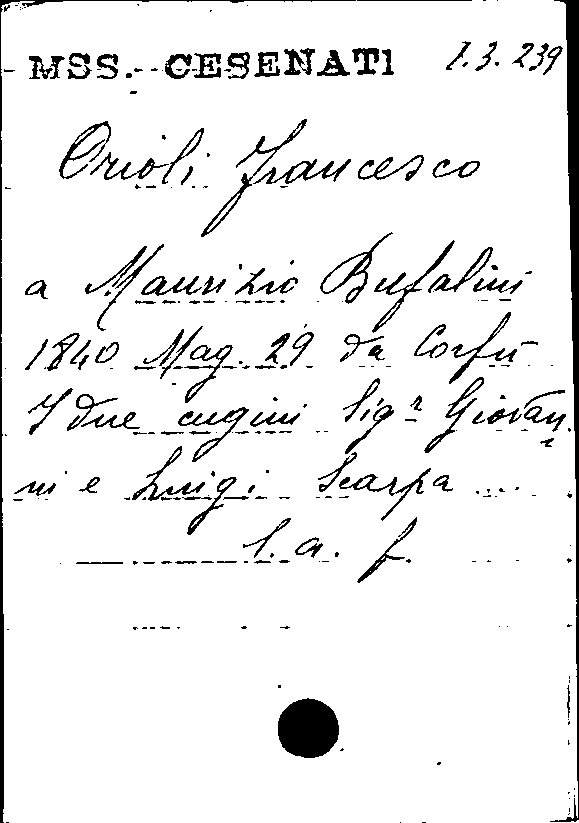 MSS. CESENATI 1.3.239
Orioli Francesco
a Maurizio Bufalini
1840 Mag. 29 da Corfù
I due cugini Sigr Giovan
ni e Luigi Scarpa ...
l. a. f.